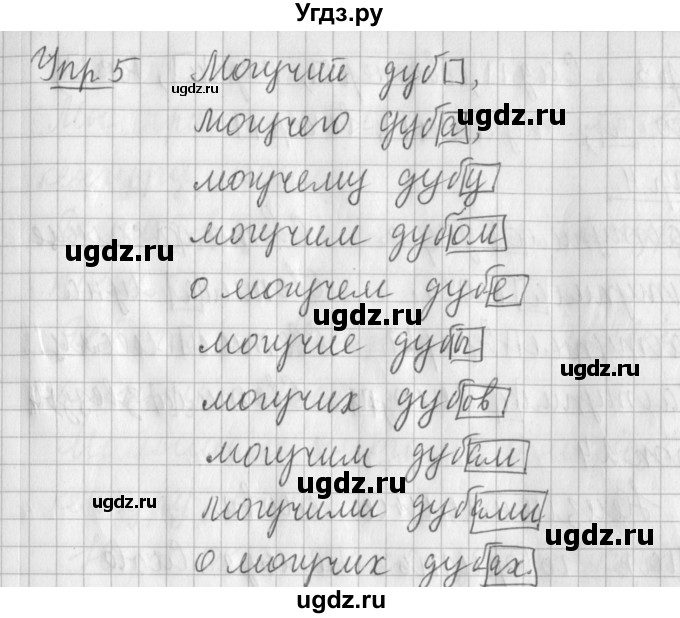 Угдз.ру
Упр 5 Могучий дуб,
могучего дуба,
могучему дубу
могучим дубом
о могучем дубе
могучие дубы
могучих дубов
могучим дубам
могучими дубами
о могучих дубах.
ugdz.ru
ugdz.ru
ugdz.ru
ugdz.ru
ugdz.ru
ugdz.ru
ugdz.ru
ugdz.ru
ugdz.ru
ugdz.ru